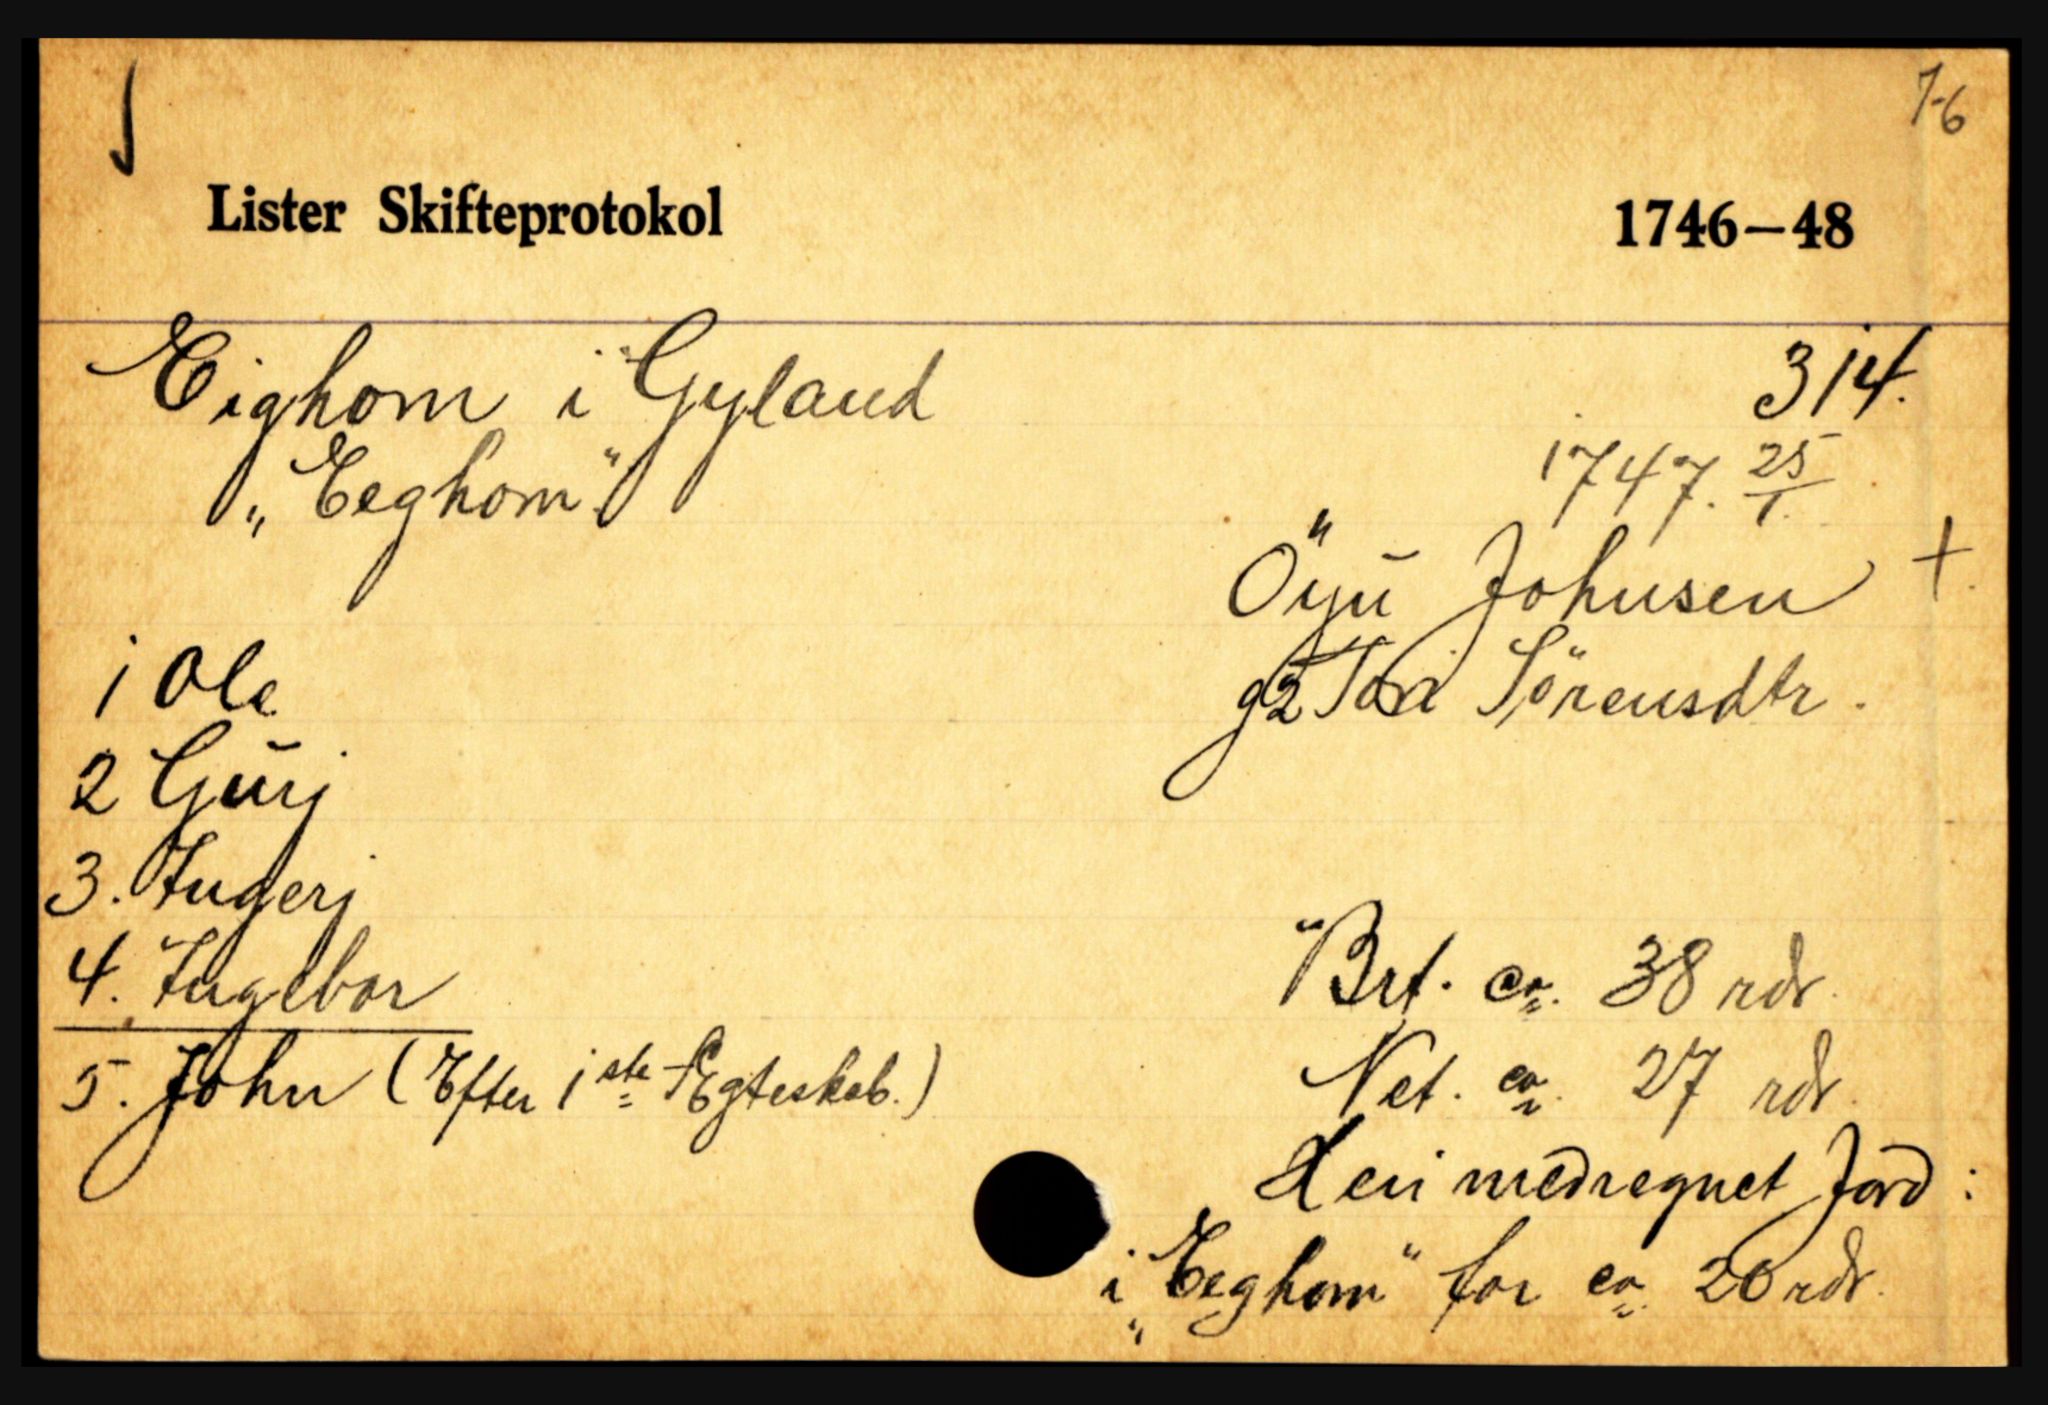 7-6
Lister Skifteprotokol 1746–48
Eighom i Gyland 314.
„Eeghom" 1747. 25/1.
Öyŭ Johnsen +.
1 Ole g2 Tori Sörensdtr.
2 Gŭrj
3. Ingerj
4. Ingebor Brt. ca. 38 rdr.
5. John (Efter 1ste Egteskab.) Net. ca. 27 rdr.
Heri medregnet Jord:
i „Eeghom" for ca. 20 rdr.